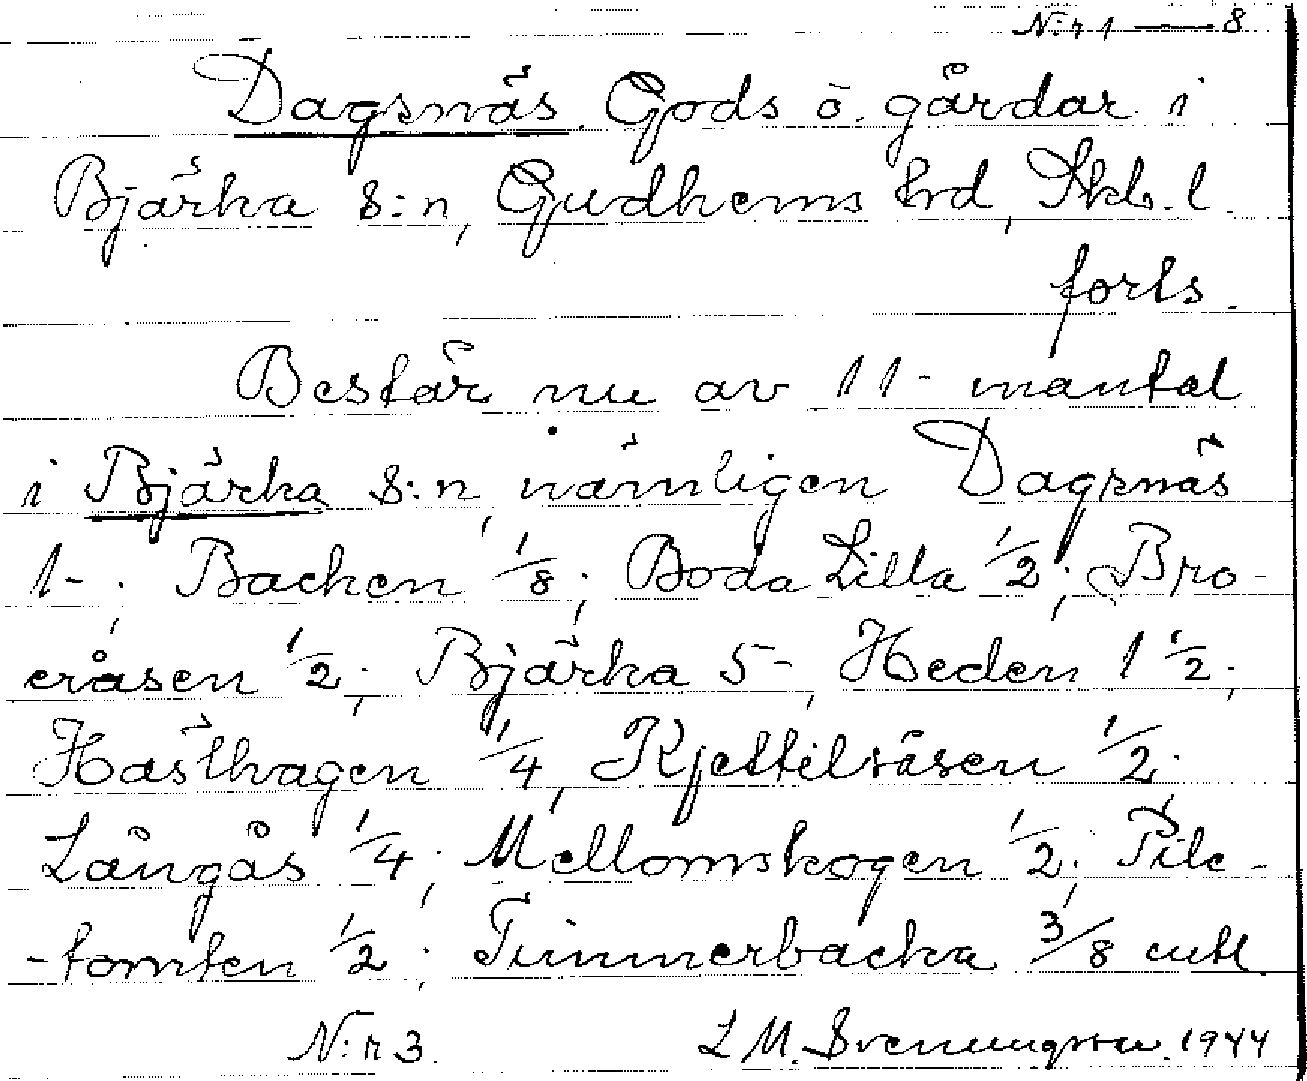 N:r 1 — 8
Dagsnäs Gods o. gårdar i
Bjärka s:n, Gudhems hrd, Skb. l.
forts.
Består nu av 11- mantal
i Bjärka s:n, nämligen Dagsnäs
1-; Backen 1/8; Boda Lilla 1/2; Bro-
eråsen 1/2; Bjärka 5-, Heden 1 1/2;
Hästhagen 1/4, Kjettilsåsen 1/2.
Långås 1/4; Mellomskogen 1/2; Pile-
-tomten 1/2; Timmerbacka 3/8 mtl.
N:r 3. L M. Svenungsson. 1944